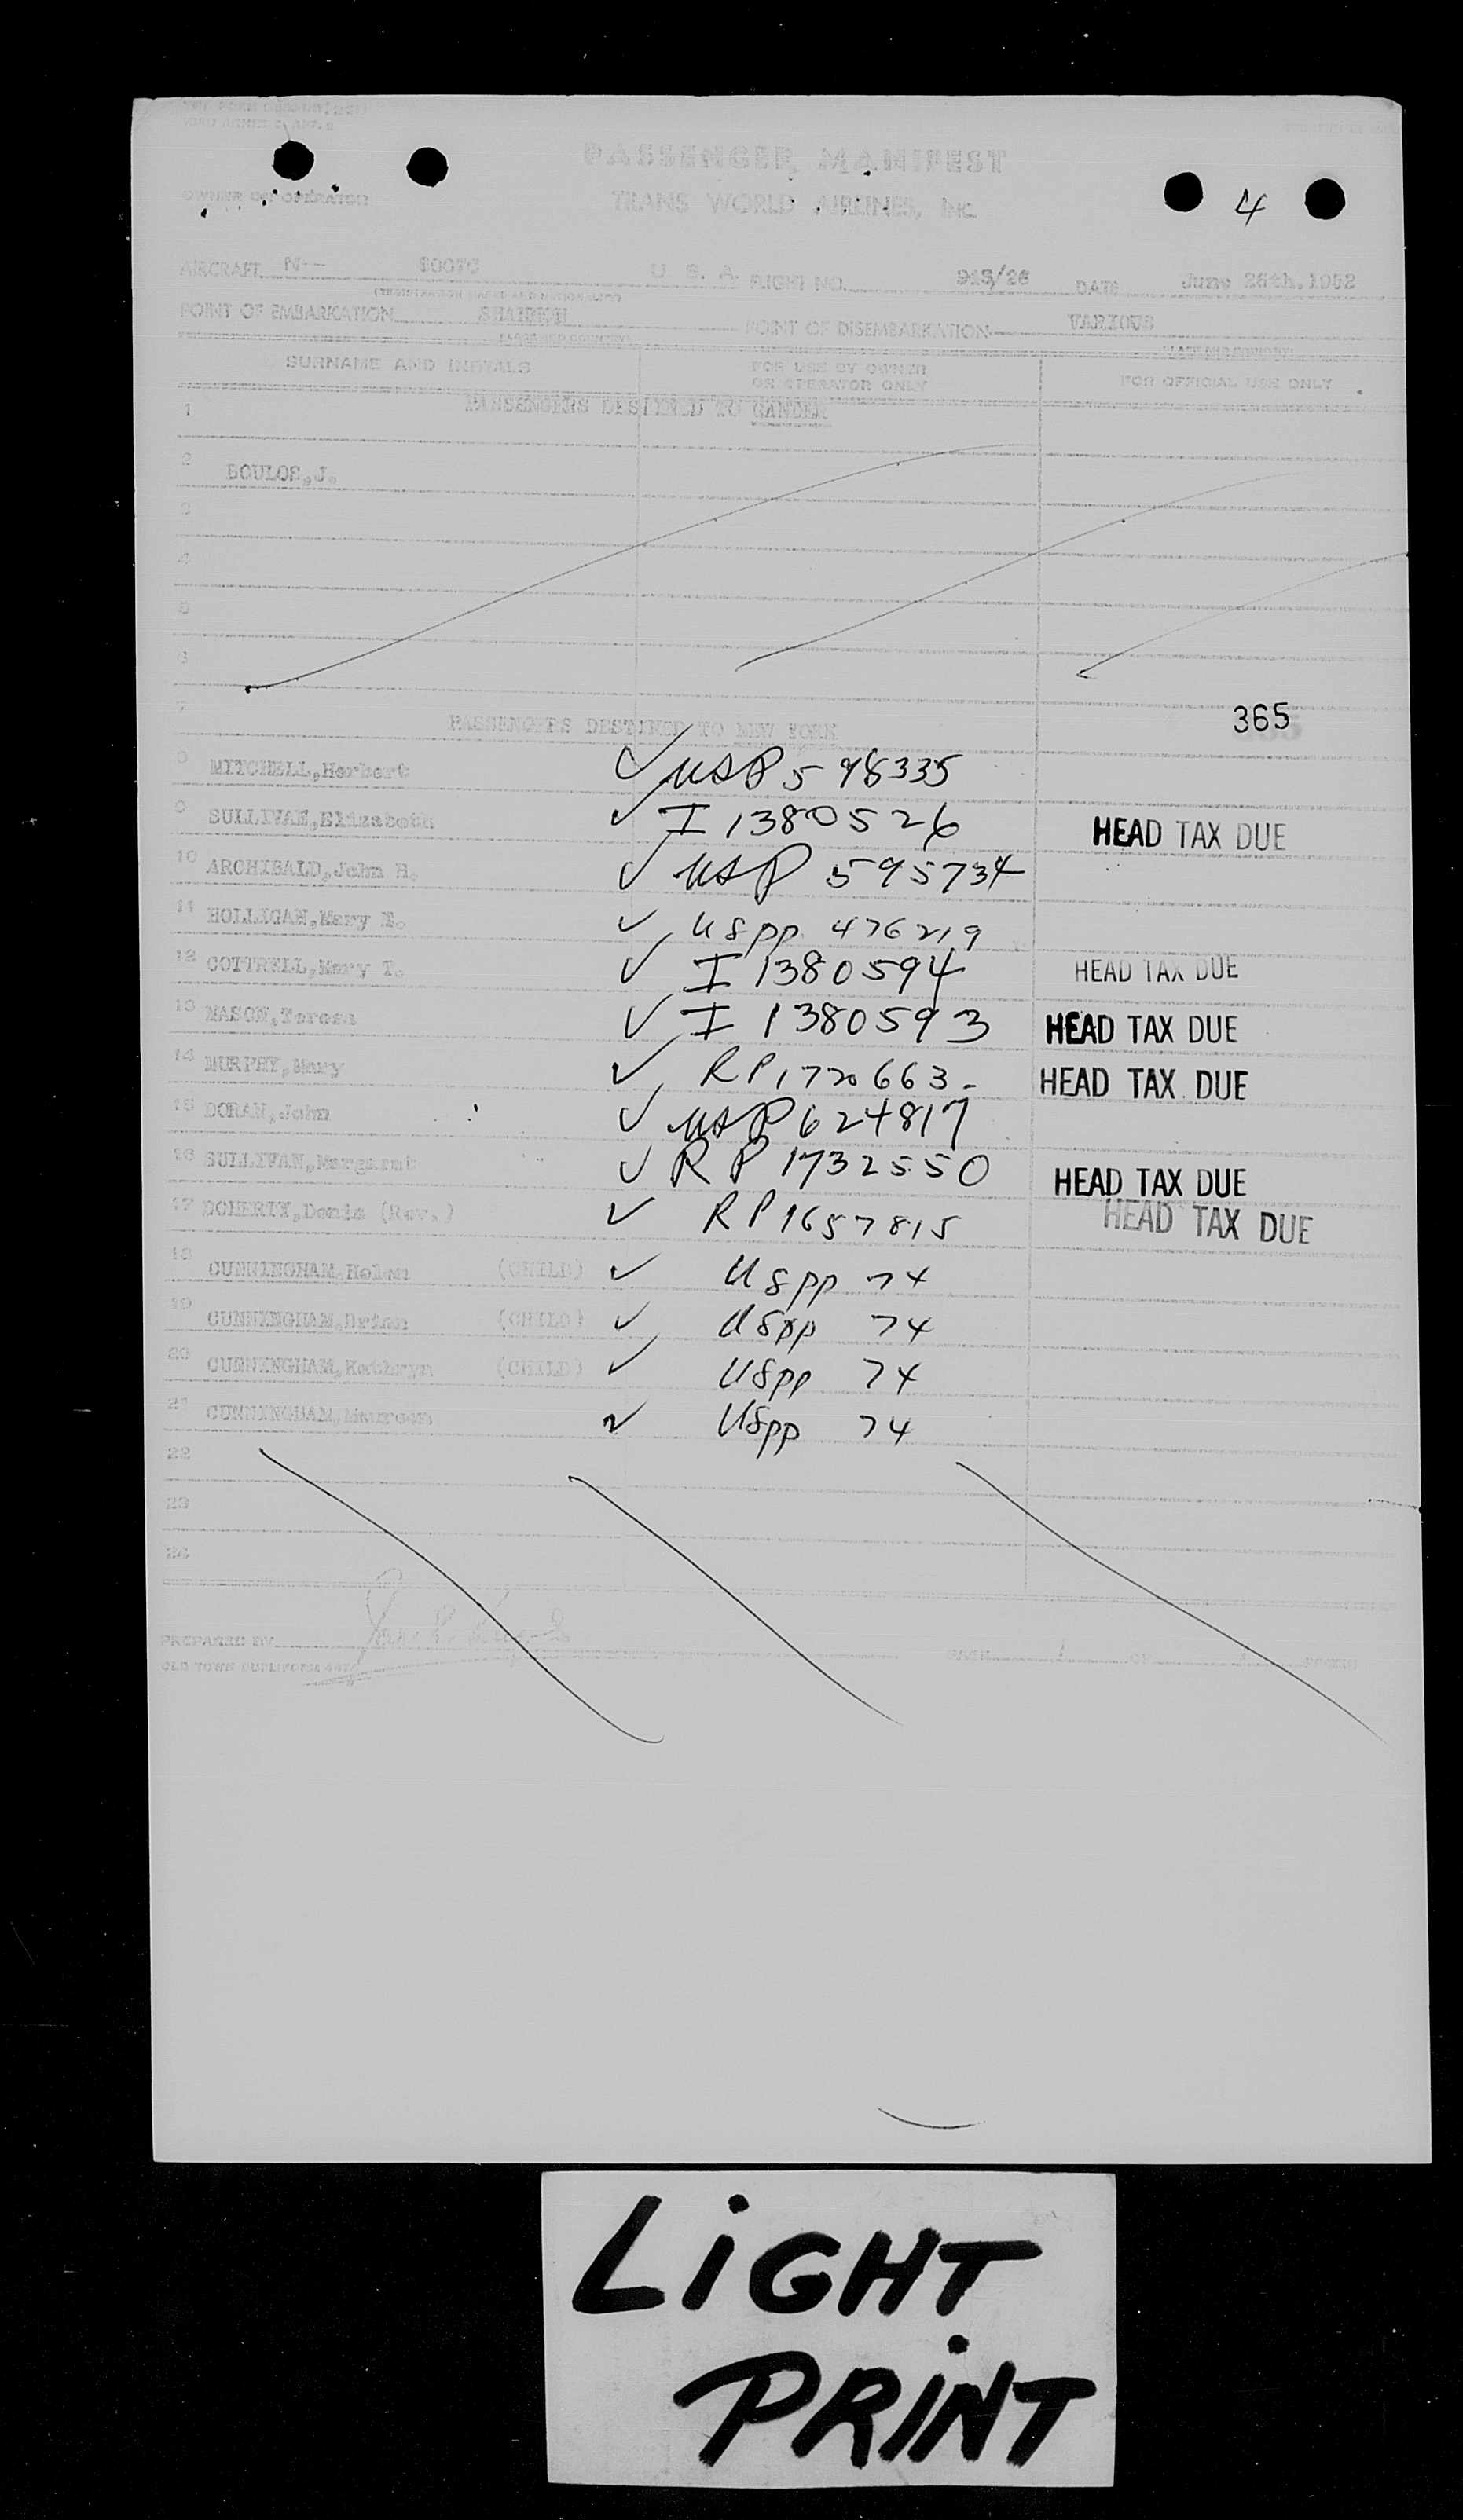 PASSENGER MANIFEST
OWNER OR OPERATOR TRANS WORLD AIRLINES, INC.
4
AIRCRAFT N-- U. S. A. FLIGHT NO. DATE June 26th, 1952
POINT OF EMBARKATION SHANNON POINT OF DISEMBARKATION VARIOUS
SURNAME AND INITIALS FOR USE BY OWNER OR OPERATOR ONLY FOR OFFICIAL USE ONLY
1 PASSENGERS DESTINED TO GANDER
2 BOULOS, J.
3
4
5
6
7 PASSENGERS DESTINED TO NEW YORK 365
8 MITCHELL, Herbert ✓ USP 598335
9 SULLIVAN, Elizabeth ✓ I 1380526 HEAD TAX DUE
10 ARCHIBALD, John H. ✓ USP 595734
11 HOLLIGAN, Mary ✓ USpp 476219
12 COTTRELL, Mary T. ✓ I 1380594 HEAD TAX DUE
13 MASON, Teresa ✓ I 1380593 HEAD TAX DUE
14 MURPHY, Mary ✓ RP 1720663- HEAD TAX DUE
15 DORAN, John ✓ USP 624817
16 SULLIVAN, Margaret ✓ RP 1732550 HEAD TAX DUE
17 DOHERTY, Denis (Rev.) ✓ RP 1657815 HEAD TAX DUE
18 CUNNINGHAM, Helen (CHILD) ✓ USpp 74
19 CUNNINGHAM, Brian (CHILD) ✓ USpp 74
20 CUNNINGHAM, Kathryn (CHILD) ✓ USpp 74
21 CUNNINGHAM, Maureen ✓ USpp 74
22
23
24
PREPARED BY PAGE 1 OF PAGES
LIGHT
PRINT